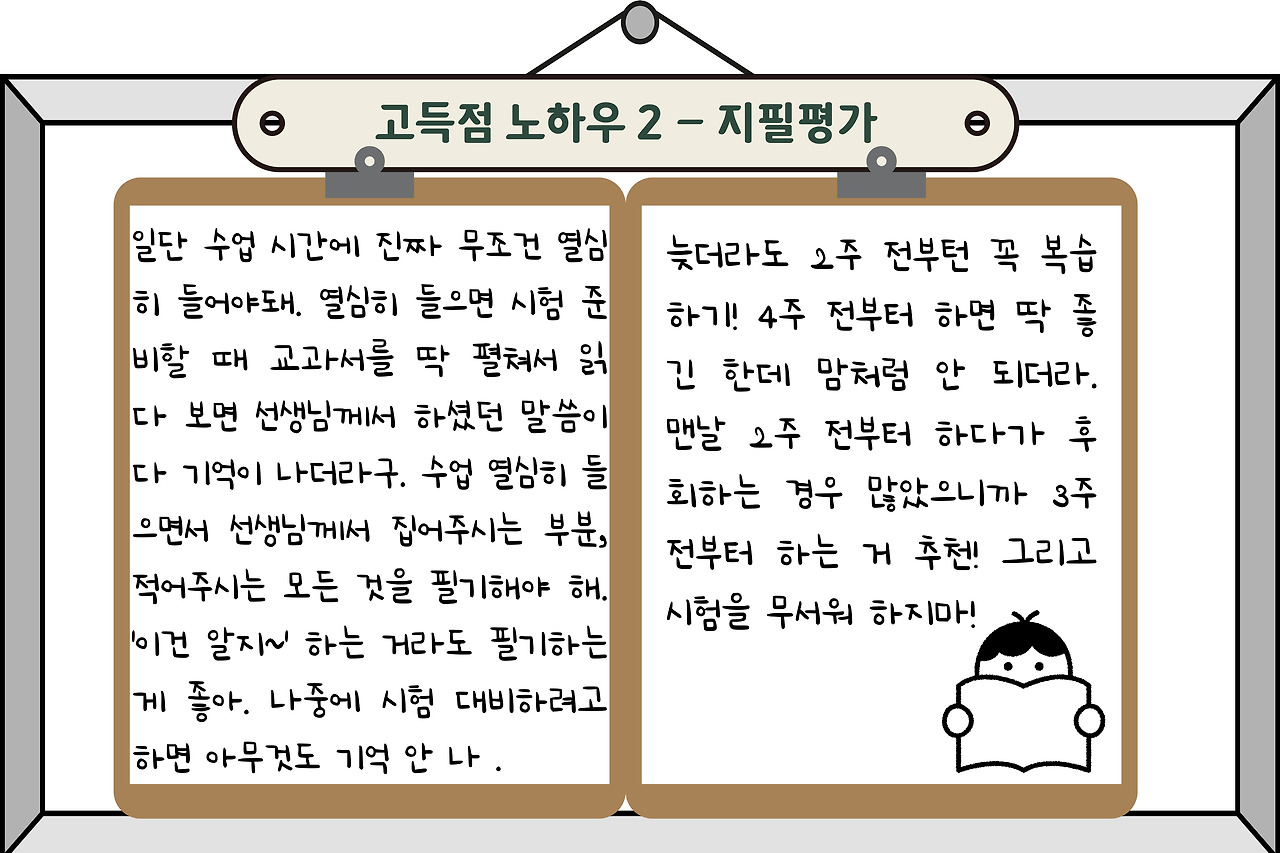 고득점 노하우 2 - 지필평가
일단 수업 시간에 진짜 무조건 열심
히 들어야돼. 열심히 들으면 시험 준
비할 때 교과서를 딱 펼쳐서 읽
다 보면 선생님께서 하셨던 말씀이
다 기억이 나더라구. 수업 열심히 들
으면서 선생님께서 집어주시는 부분,
적어주시는 모든 것을 필기해야 해.
'이건 알지~' 하는 거라도 필기하는
게 좋아. 나중에 시험 대비하려고
하면 아무것도 기억 안 나 .
늦더라도 2주 전부턴 꼭 복습
하기! 4주 전부터 하면 딱 좋
긴 한데 맘처럼 안 되더라.
맨날 2주 전부터 하다가 후
회하는 경우 많았으니까 3주
전부터 하는 거 추천! 그리고
시험을 무서워 하지마!